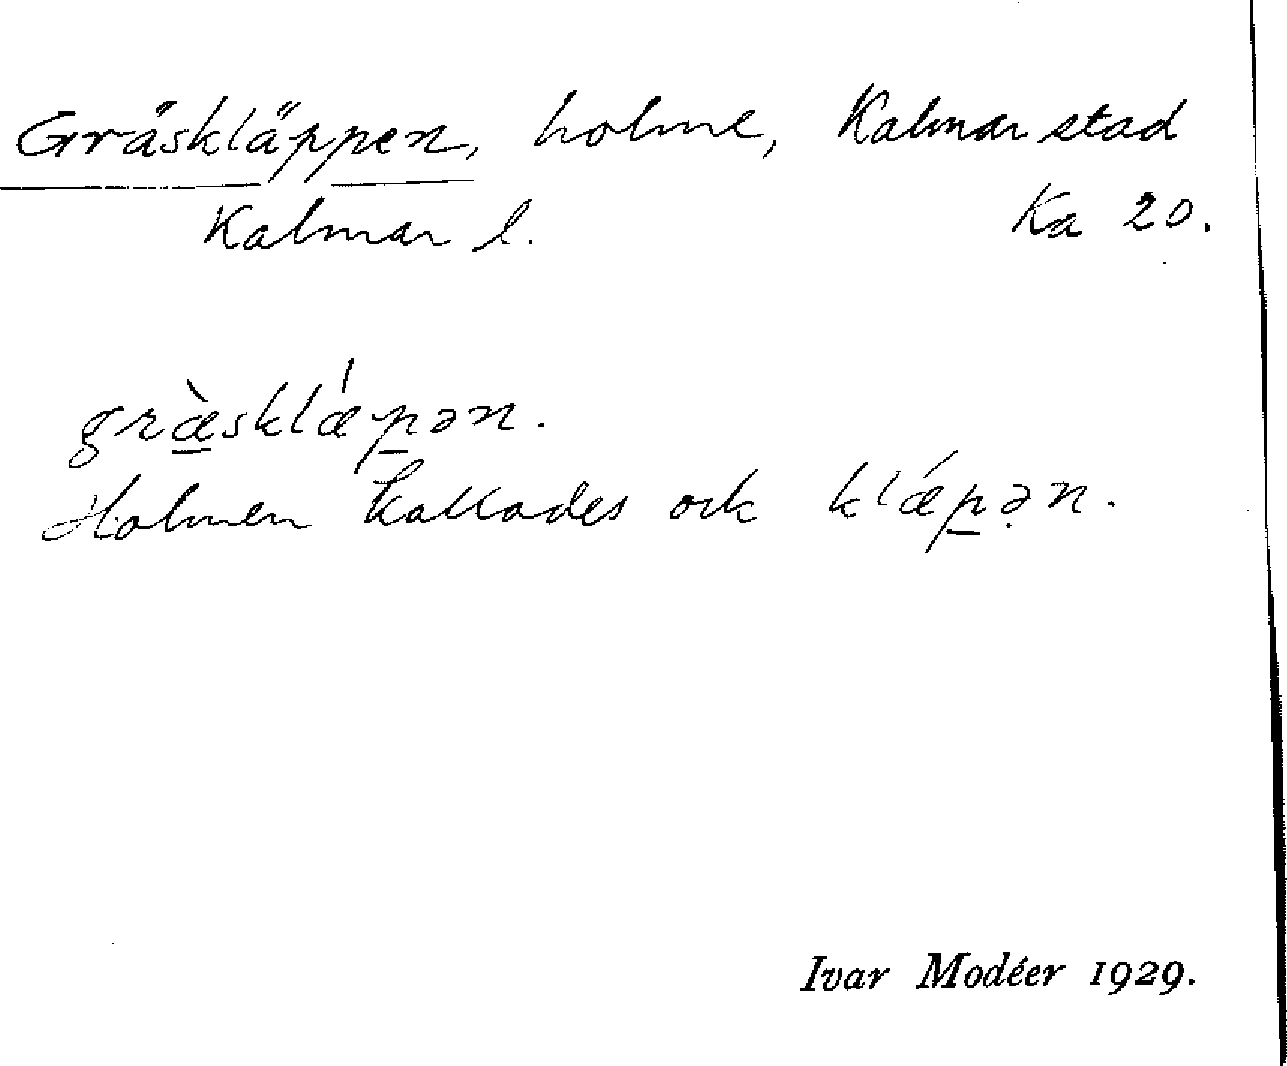 Gräskläppen, holme, Kalmar stad
Kalmar l. Ka 20.
græ̀sklǽpən.
Holmen kallades ock klǽpən.
Ivar Modéer 1929.